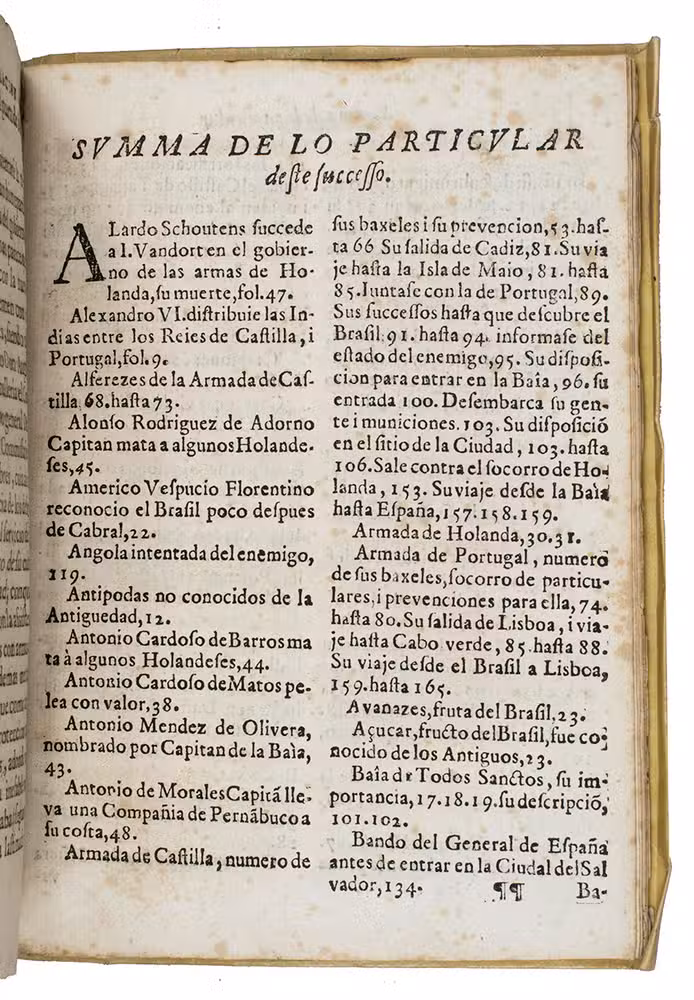 SVMMA DE LO PARTICVLAR
deste successo.
ALardo Schoutens succede
a I. Vandort en el gobier-
no de las armas de Ho-
landa, su muerte, fol. 47.
Alexandro VI. distribuie las In-
dias entre los Reies de Castilla, i
Portugal, fol. 9.
Alferezes de la Armada de Cas-
tilla, 68. hasta 73.
Alonso Rodriguez de Adorno
Capitan mata a algunos Holande-
ses, 45.
Americo Vespucio Florentino
reconocio el Brasil poco despues
de Cabral, 22.
Angola intentada del enemigo,
119.
Antipodas no conocidos de la
Antiguedad, 12.
Antonio Cardoso de Barros ma
ta à algunos Holandeses, 44.
Antonio Cardoso de Matos pe-
lea con valor, 38.
Antonio Mendez de Olivera,
nombrado por Capitan de la Baìa,
43.
Antonio de Morales Capitã lle-
va una Compañia de Pernãbuco a
su costa, 48.
Armada de Castilla, numero de
sus baxeles i su prevencion, 53. has-
ta 66 Su salida de Cadiz, 81. Su via
je hasta la Isla de Maio, 81. hasta
85. Iuntase con la de Portugal, 89.
Sus successos hasta que descubre el
Brasil, 91. hasta 94. informase del
estado del enemigo, 95. Su disposi-
cion para entrar en la Baîa, 96. su
entrada 100. Desembarca su gen-
te i municiones. 103. Su disposició
en el sitio de la Ciudad, 103. hasta
106. Sale contra el socorro de Ho-
landa, 153. Su viaje desde la Baìa
hasta España, 157. 158. 159.
Armada de Holanda, 30. 31.
Armada de Portugal, numero
de sus baxeles, socorro de particu-
lares, i prevenciones para ella, 74.
hasta 80. Su salida de Lisboa, i via-
je hasta Cabo verde, 85. hasta 88.
Su viaje desde el Brasil a Lisboa,
159. hasta 165.
Avanazes, fruta del Brasil, 23.
Açucar, fructo del Brasil, fue co-
nocido de los Antiguos, 23.
Baîa de Todos Sanctos, su im-
portancia, 17. 18. 19. su descripció,
101. 102.
Bando del General de España
antes de entrar en la Ciudal del Sal
vador, 134.
¶¶ Ba-